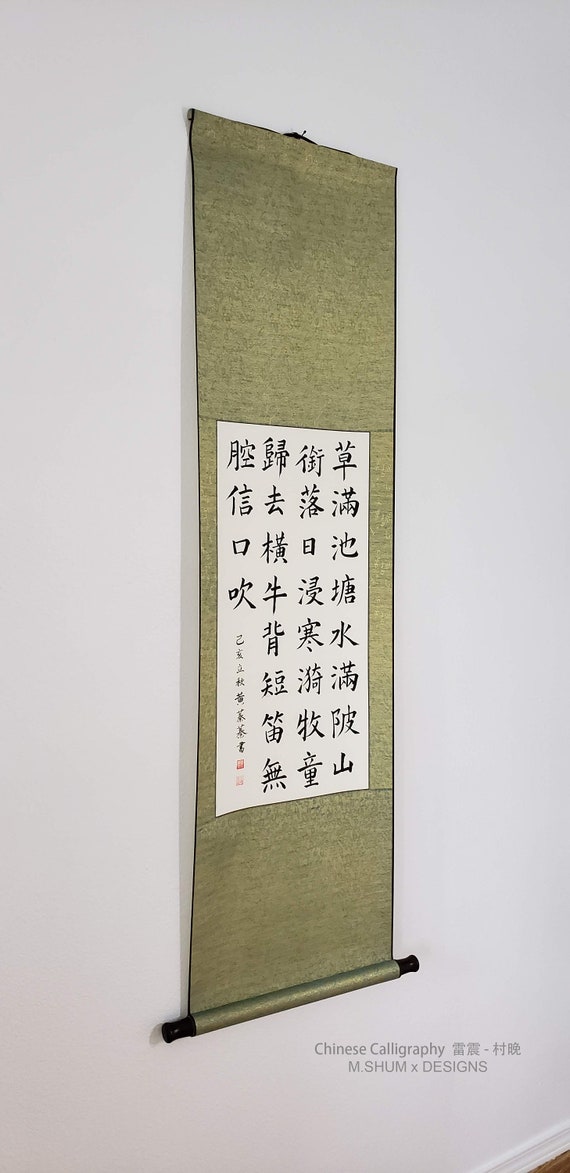 草滿池塘水滿陂山
銜落日浸寒漪牧童
歸去橫牛背短笛無
腔信口吹
己亥立秋黃蓁蓁書
Chinese Calligraphy 雷震 - 村晚
M.SHUM x DESIGNS